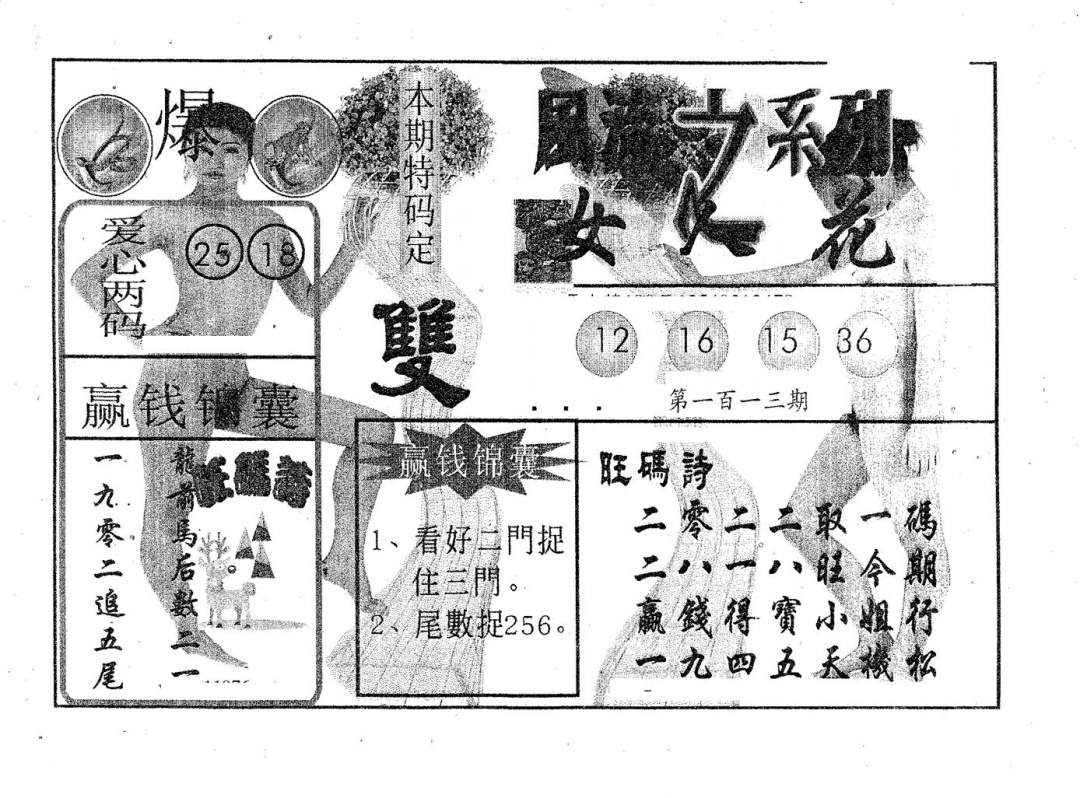 爆
爱心两码
25 18
赢钱锦囊
龍前馬后數二一
一九零二追五尾
本期特码定
雙
之系列
女人花
12 16 15 36
第一百一三期
赢钱锦囊
1、看好二門捉
住三門。
2、尾數捉256。
旺碼詩
二零二二取一碼
二八一八旺今期
贏錢得寶小姐行
一九四五天機松